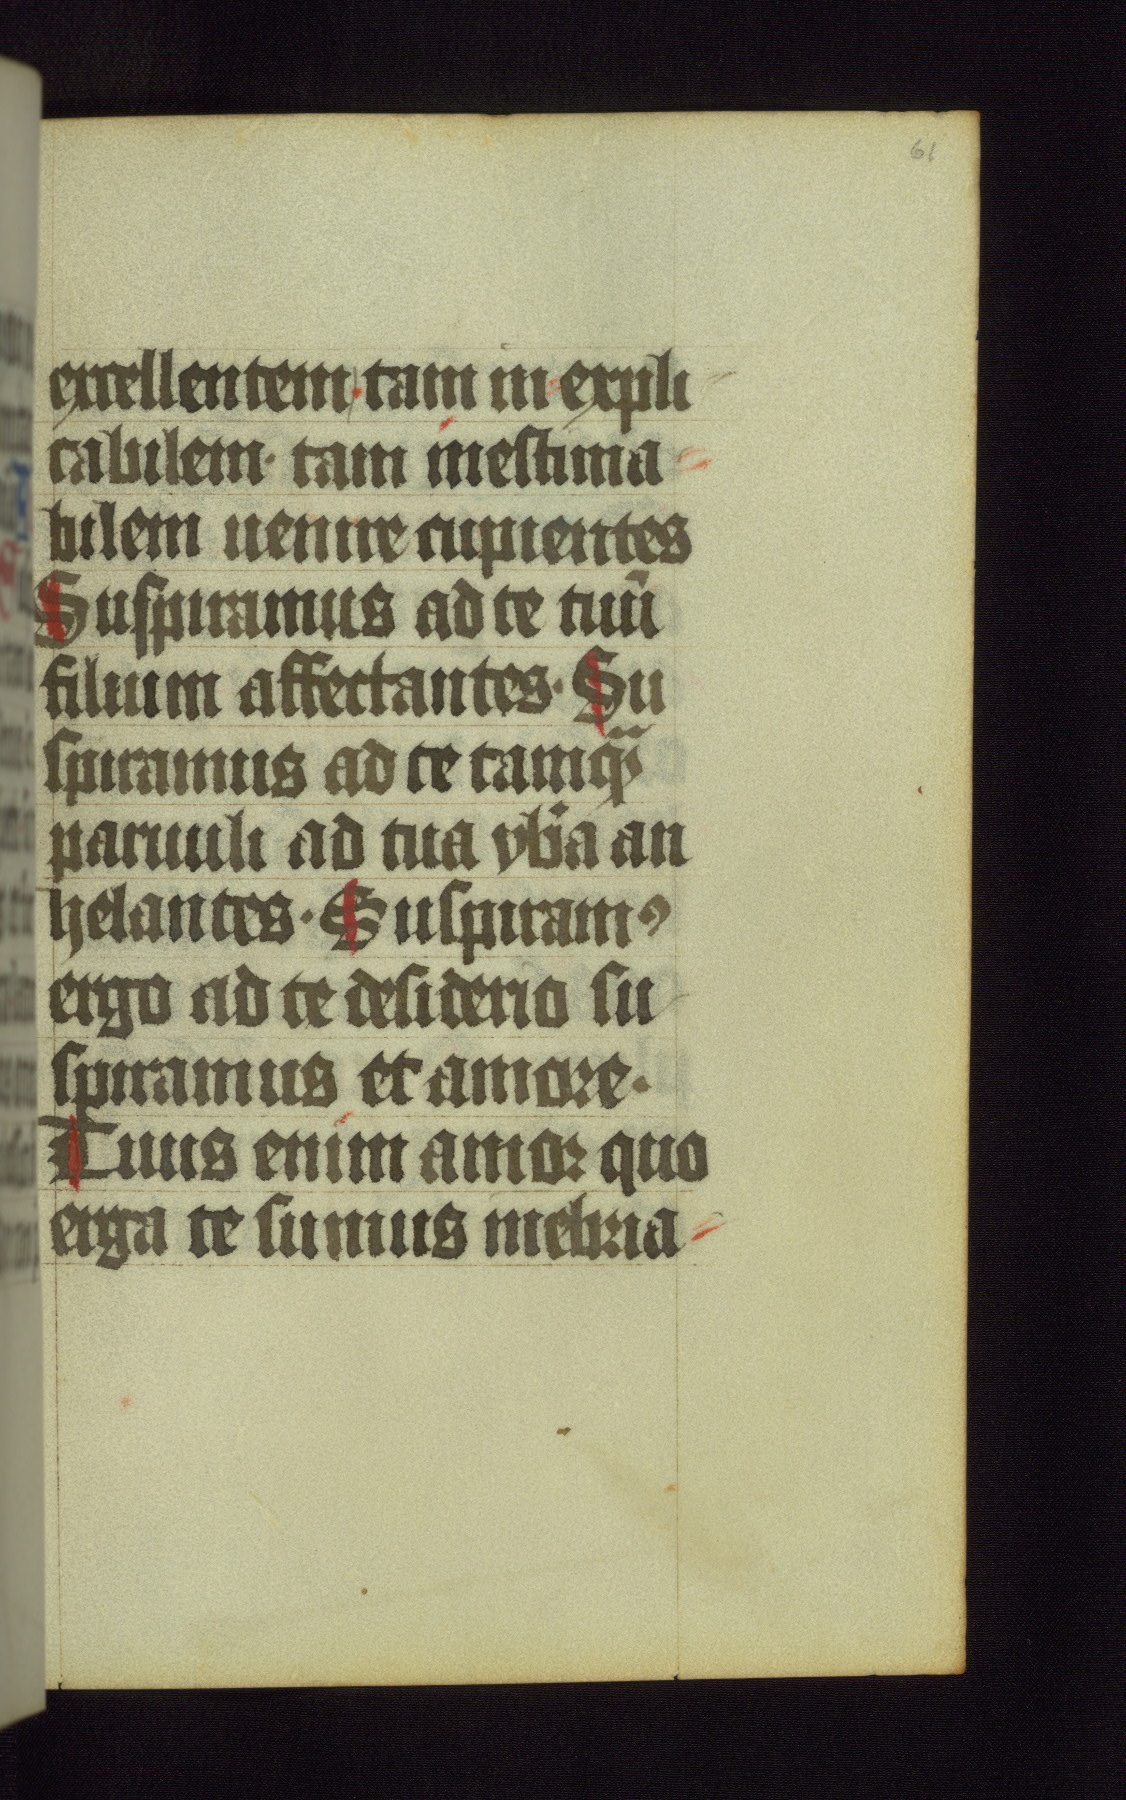 61
excellentem· tam in expli
cabilem· tam inestima
bilem uenire cupientes
Suspiramus ad te tuū
filium affectantes· Su
spiramus ad te tamq̄ȝ
paruuli ad tua vb̄a an
helantes· Suspiramꝰ
ergo ad te desiderio su
spiramus et amore·
Tuus enim amor quo
erga te sumus inebria